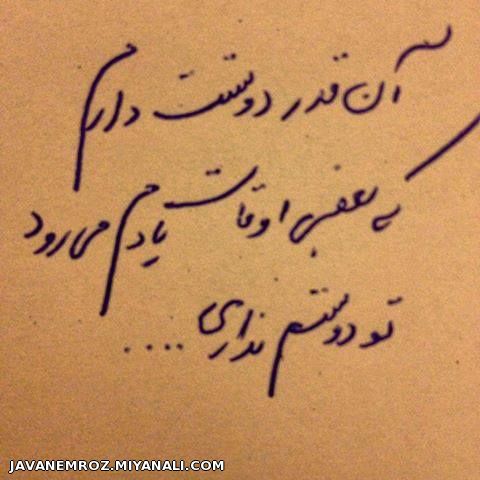 آن قدر دوستت دارم
که بعضی اوقات یادم می رود
تو دوستم نداری....
JAVANEMROZ.MIYANALI.COM